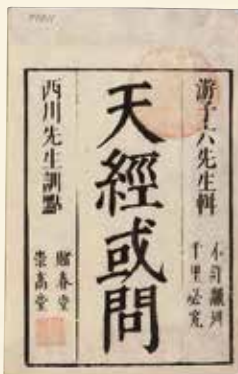 游子六先生輯
不許飜刻
千里必究
天經或問
西川先生訓點
崇高堂